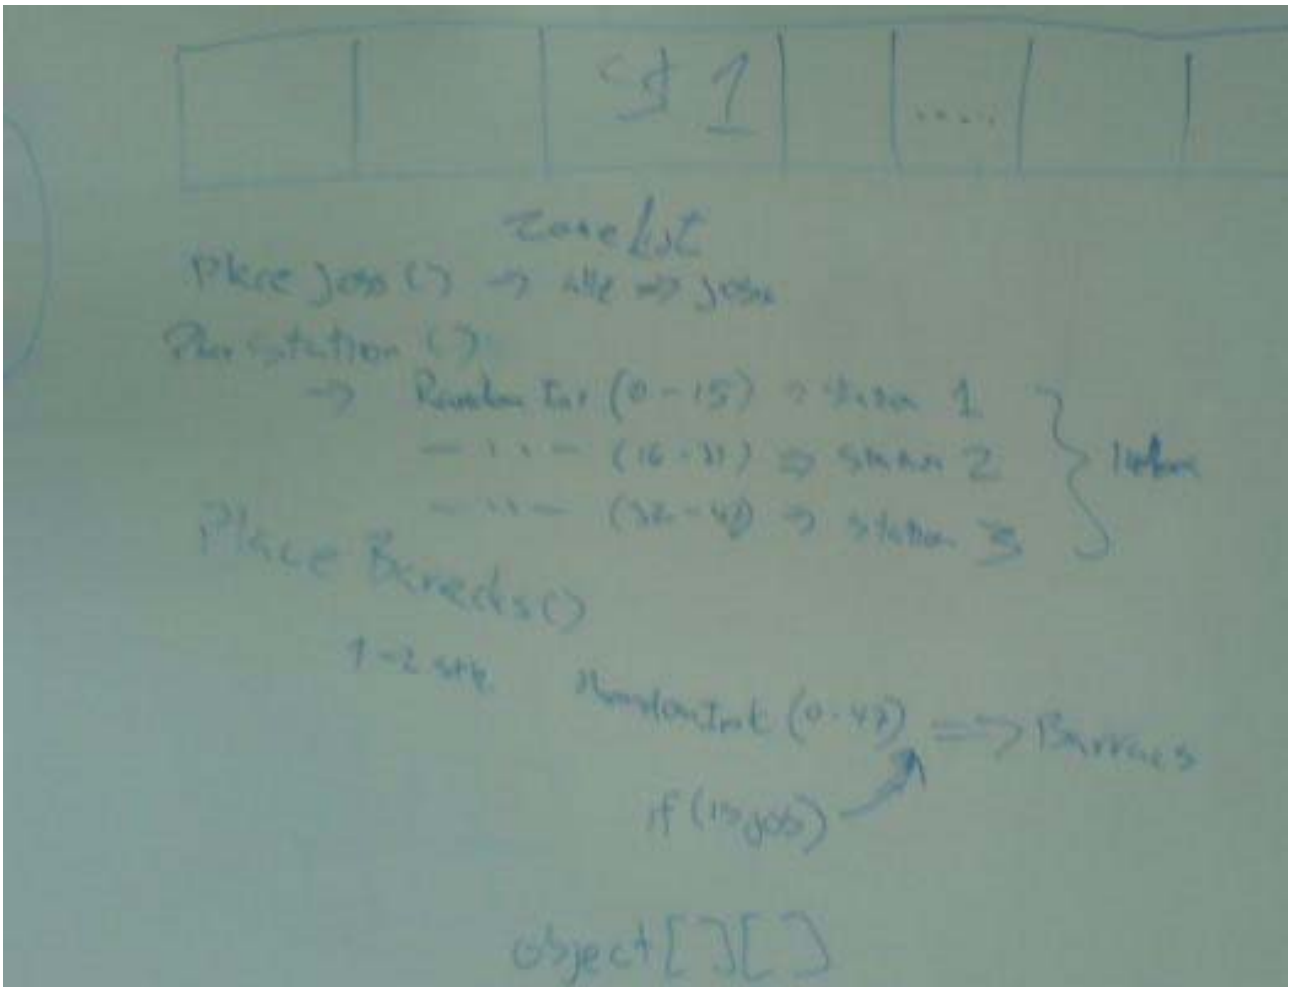 st 1
.....
Zone list
Place Jobs () => alle => jobs
Station ():
=> Random Int (0-15) => station 1
— '' — (16-31) => station 2
— '' — (32-47) => station 3
Place Baracks()
1-2 stk. RandomInt (0-47) => Barracs
if (is job)
object[][]